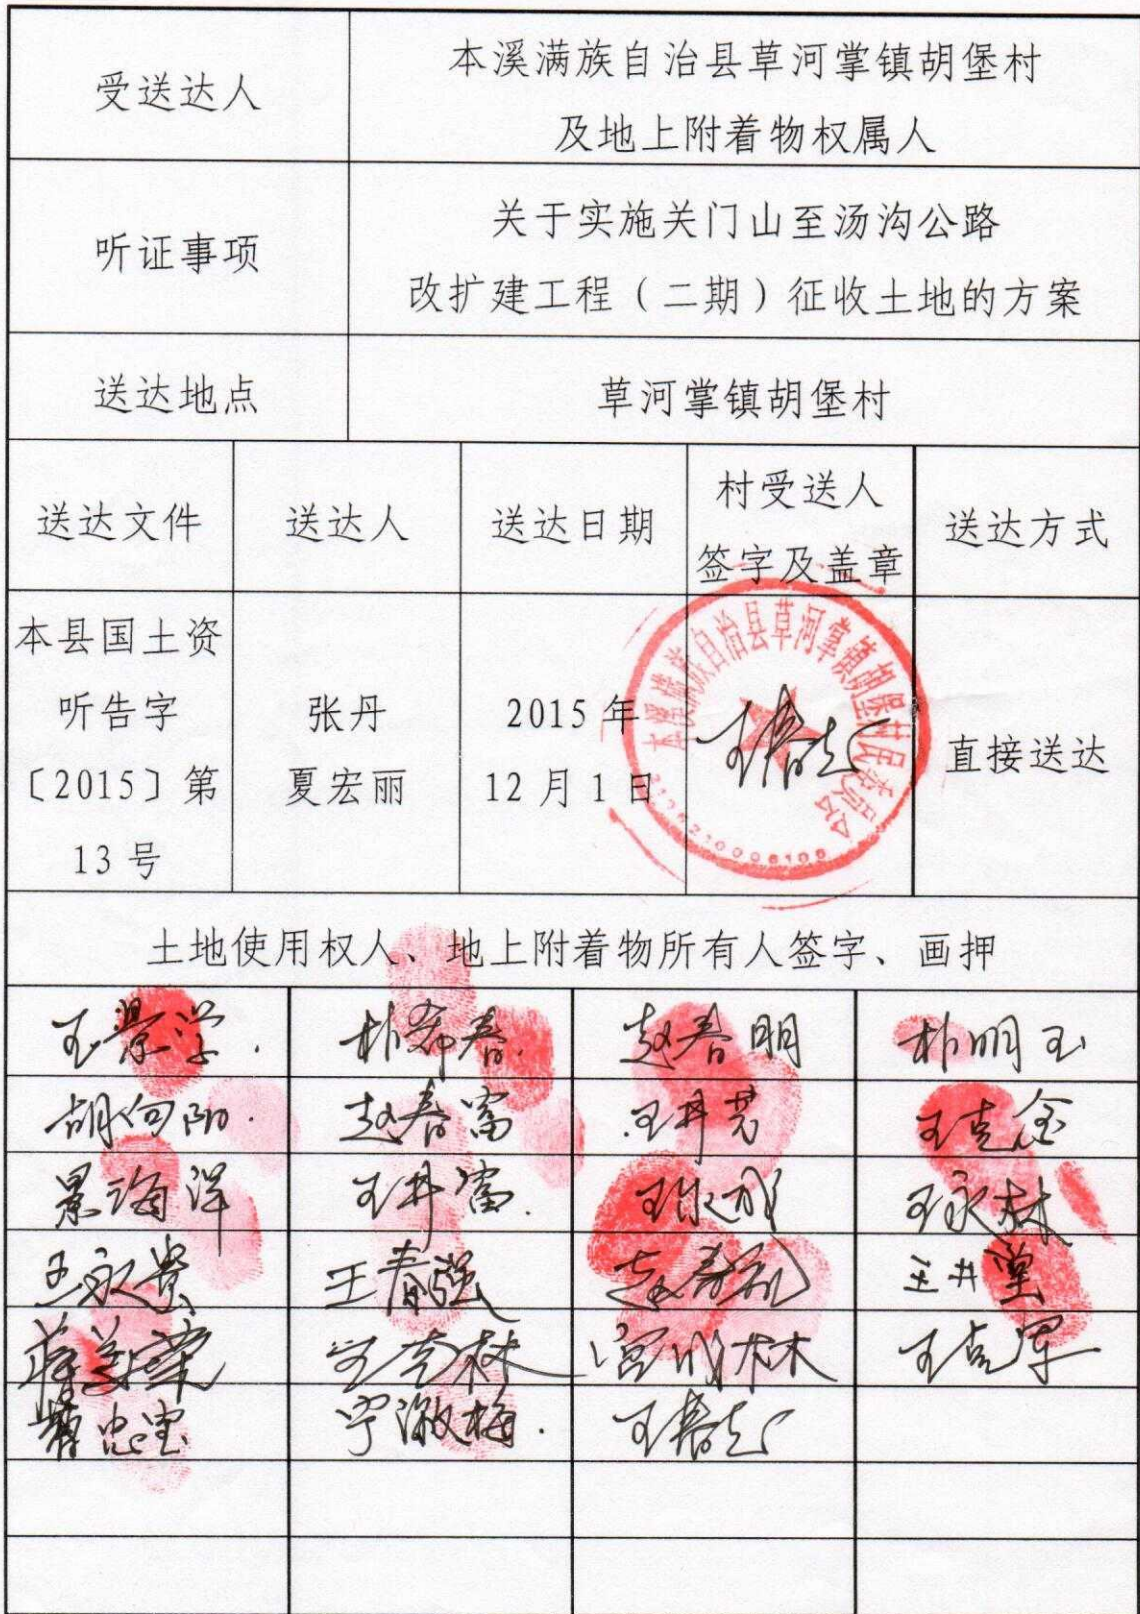 受送达人
本溪满族自治县草河掌镇胡堡村
及地上附着物权属人
听证事项
关于实施关门山至汤沟公路
改扩建工程（二期）征收土地的方案
送达地点
草河掌镇胡堡村
送达文件
送达人
送达日期
村受送人
签字及盖章
送达方式
本县国土资
听告字
〔2015〕第
13号
张丹
夏宏丽
2015年
12月1日
本溪满族自治县草河掌镇胡堡村民委员会
王春志
直接送达
土地使用权人、地上附着物所有人签字、画押
王景洋
朴希春
赵春明
朴明玉
胡向阳
赵春富
王井芳
王克金
景海洋
王井富
王永林
王永贵
王春强
王井堂
王克林
宫明林
王克军
曹忠宝
宁淑梅
王春志